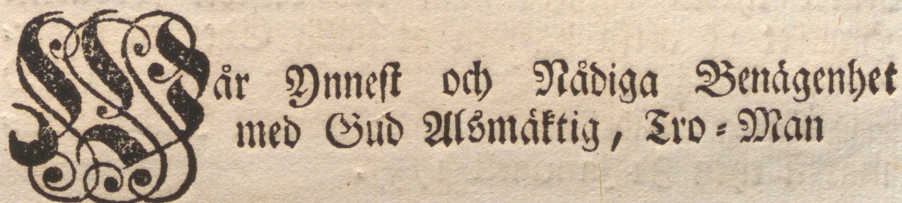 Wår Ynnest och Nådiga Benägenhet
med Gud Alsmäktig, Tro-Man